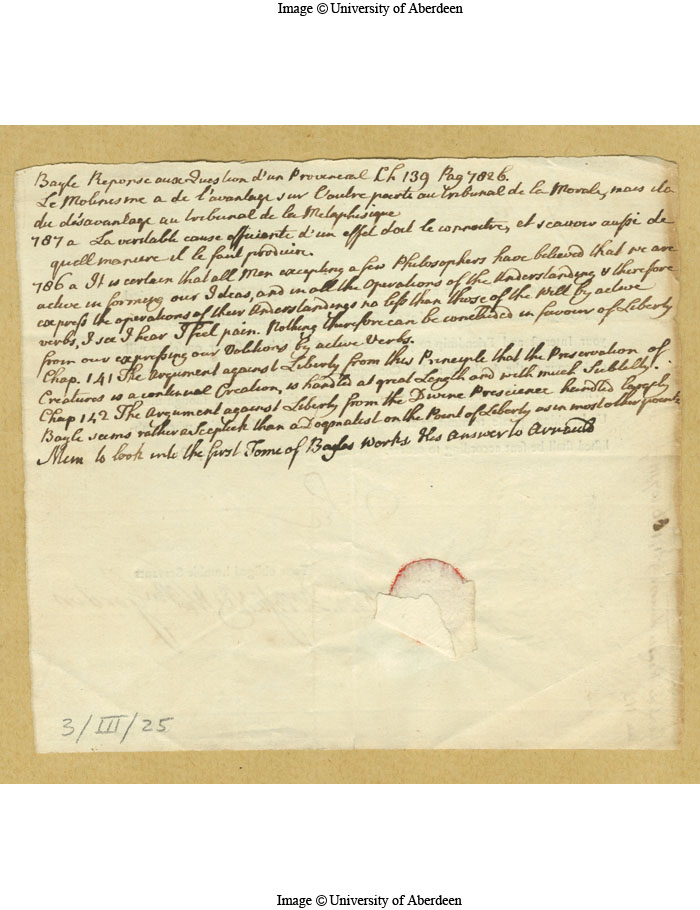 Image © University of Aberdeen
Bayle Reponse aux Question d'un Provincial Ch 139 Pag 782 b.
Le Molinesme a de l'avantage sur l'autre partie au tribunal de la Morale, mais il a
du désavantage au tribunal de la Metaphisique
787 a La veritable cause efficiente d'un effet doit le connoitre, et scavoir aussi de
quell maniere il le faut produire.
786 a It is certain that all Men excepting a few Philosophers have believed that we are
active in forming our Ideas, and in all the Operations of the Understanding & therefore
express the operations of their Understandings no less than those of the Will by active
verbs, I see I hear I feel pain. Nothing therefore can be concluded in favour of Liberty
from our expressing our Volitions by active Verbs.
Chap. 141 The Argument against Liberty from this Principle that the Preservation of
Creatures is a continual Creation, is handled at great Length and with much Subtilty.
Chap 142 The Argument against Liberty from the Divine Prescience handled largely
Bayle seems rather a Sceptick than a Dogmatist on the Point of Liberty as in most other points
Mem to look into the first Tome of Bayles Works His Answer to Arnaud
3/III/25
Image © University of Aberdeen